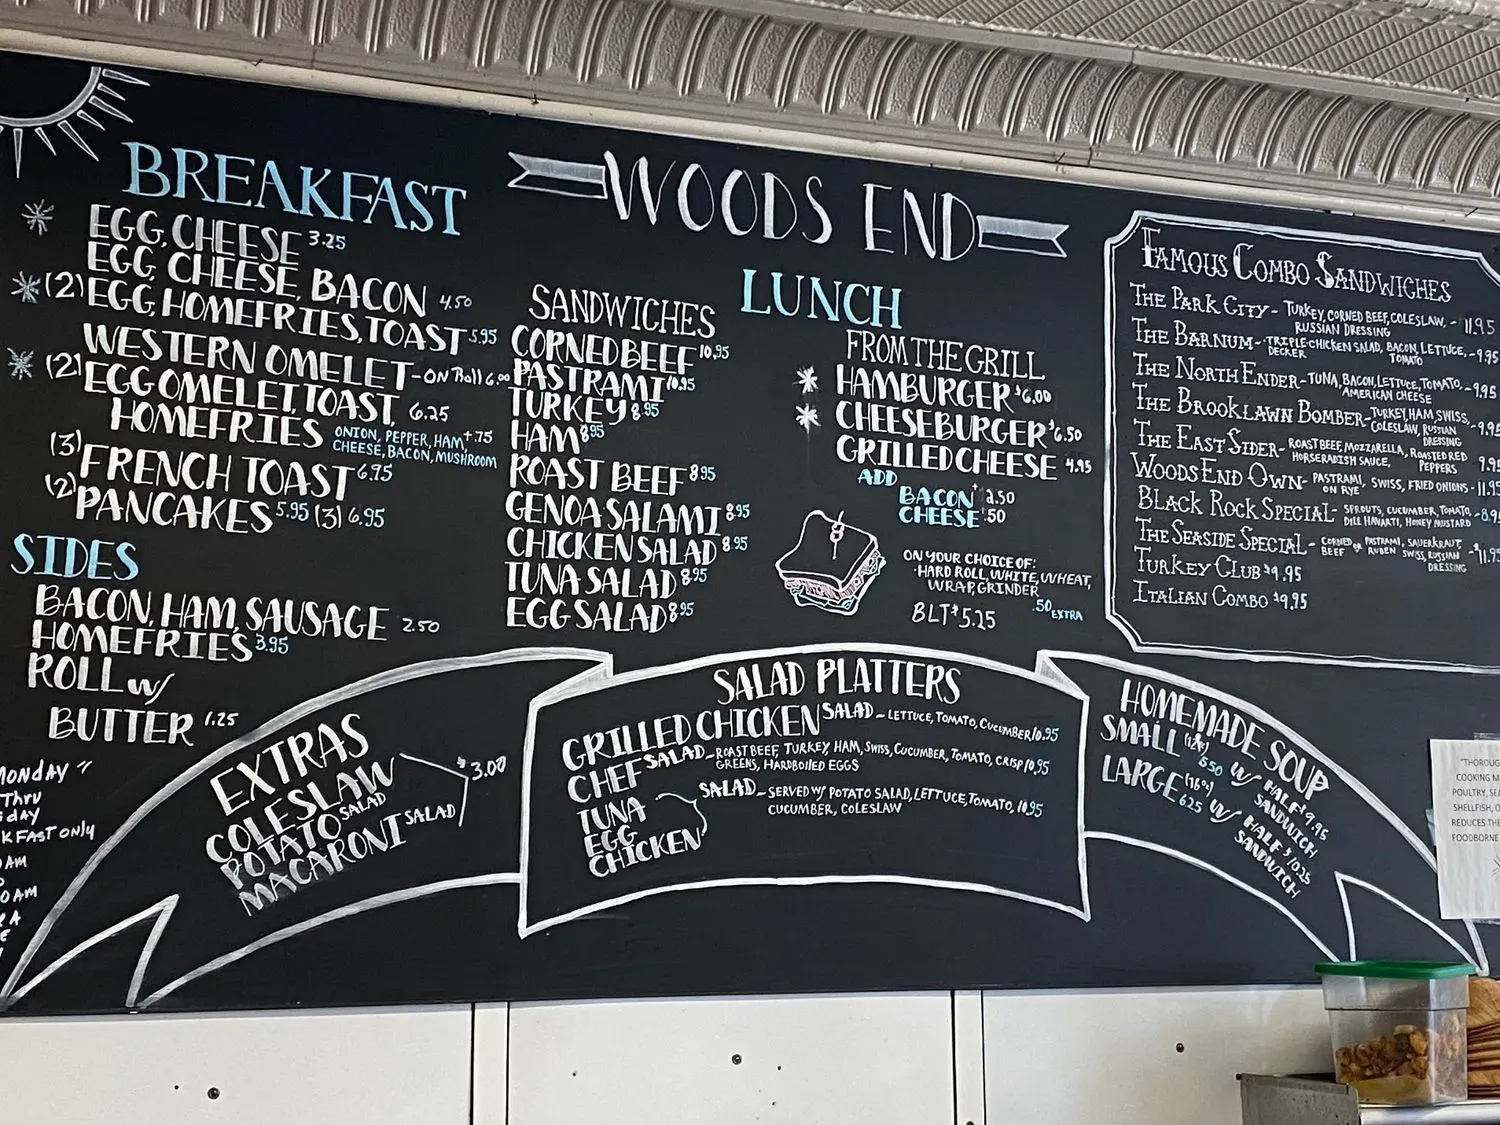 WOODS END
BREAKFAST
EGG, CHEESE 3.25
EGG, CHEESE, BACON 4.50
(2) EGG, HOMEFRIES, TOAST 5.95
WESTERN OMELET - ON Roll 6.00
(2) EGG OMELET, TOAST, 6.25
HOMEFRIES ONION, PEPPER, HAM, +.75
CHEESE, BACON, MUSHROOM
(3) FRENCH TOAST 6.75
(2) PANCAKES 5.95 (3) 6.95
SIDES
BACON, HAM, SAUSAGE 2.50
HOMEFRIES 3.95
ROLL w/
BUTTER 1.25
LUNCH
SANDWICHES
CORNED BEEF 10.95
PASTRAMI 10.95
TURKEY 8.95
HAM 8.95
ROAST BEEF 8.95
GENOA SALAMI 8.95
CHICKEN SALAD 8.95
TUNA SALAD 8.95
EGG SALAD 8.95
FROM THE GRILL
HAMBURGER $6.00
CHEESEBURGER $6.50
GRILLED CHEESE 4.95
ADD
BACON + 2.50
CHEESE .50
ON YOUR CHOICE OF:
HARD ROLL, WHITE, WHEAT,
WRAP, GRINDER
.50 EXTRA
BLT $5.25
FAMOUS COMBO SANDWICHES
THE PARK CITY - TURKEY, CORNED BEEF, COLESLAW, - 11.95
RUSSIAN DRESSING
THE BARNUM - TRIPLE DECKER - CHICKEN SALAD, BACON, LETTUCE, TOMATO - 9.95
THE NORTH ENDER - TUNA, BACON, LETTUCE, TOMATO, - 9.95
AMERICAN CHEESE
THE BROOKLAWN BOMBER - TURKEY, HAM, SWISS, - 9.95
COLESLAW, RUSSIAN DRESSING
THE EAST SIDER - ROAST BEEF, MOZZARELLA, ROASTED RED PEPPERS 9.95
HORSERADISH SAUCE,
WOODS END OWN - PASTRAMI, SWISS, FRIED ONIONS - 11.95
ON RYE
BLACK ROCK SPECIAL - SPROUTS, CUCUMBER, TOMATO, - 8.9
DILL HAVARTI, HONEY MUSTARD
THE SEASIDE SPECIAL - CORNED BEEF or PASTRAMI, SAUERKRAUT, - $11.95
RUBEN SWISS, RUSSIAN DRESSING
TURKEY CLUB $9.95
ITALIAN COMBO $9.95
MONDAY
Thru
KFAST ONLY
AM
EXTRAS
COLESLAW $3.00
POTATO SALAD
MACARONI SALAD
SALAD PLATTERS
GRILLED CHICKEN SALAD - LETTUCE, TOMATO, CUCUMBER 10.95
CHEF SALAD - ROAST BEEF, TURKEY, HAM, SWISS, CUCUMBER, TOMATO, CRISP 10.95
GREENS, HARDBOILED EGGS
TUNA
EGG
CHICKEN
SALAD - SERVED W/ POTATO SALAD, LETTUCE, TOMATO, 10.95
CUCUMBER, COLESLAW
HOMEMADE SOUP
SMALL (12oz) 5.50 W/ HALF SANDWICH $9.95
LARGE (16oz) 6.25 W/ HALF SANDWICH $10.25
"THOROUG
COOKING M
POULTRY, SEA
SHELLFISH, O
REDUCES THE
FOODBORNE